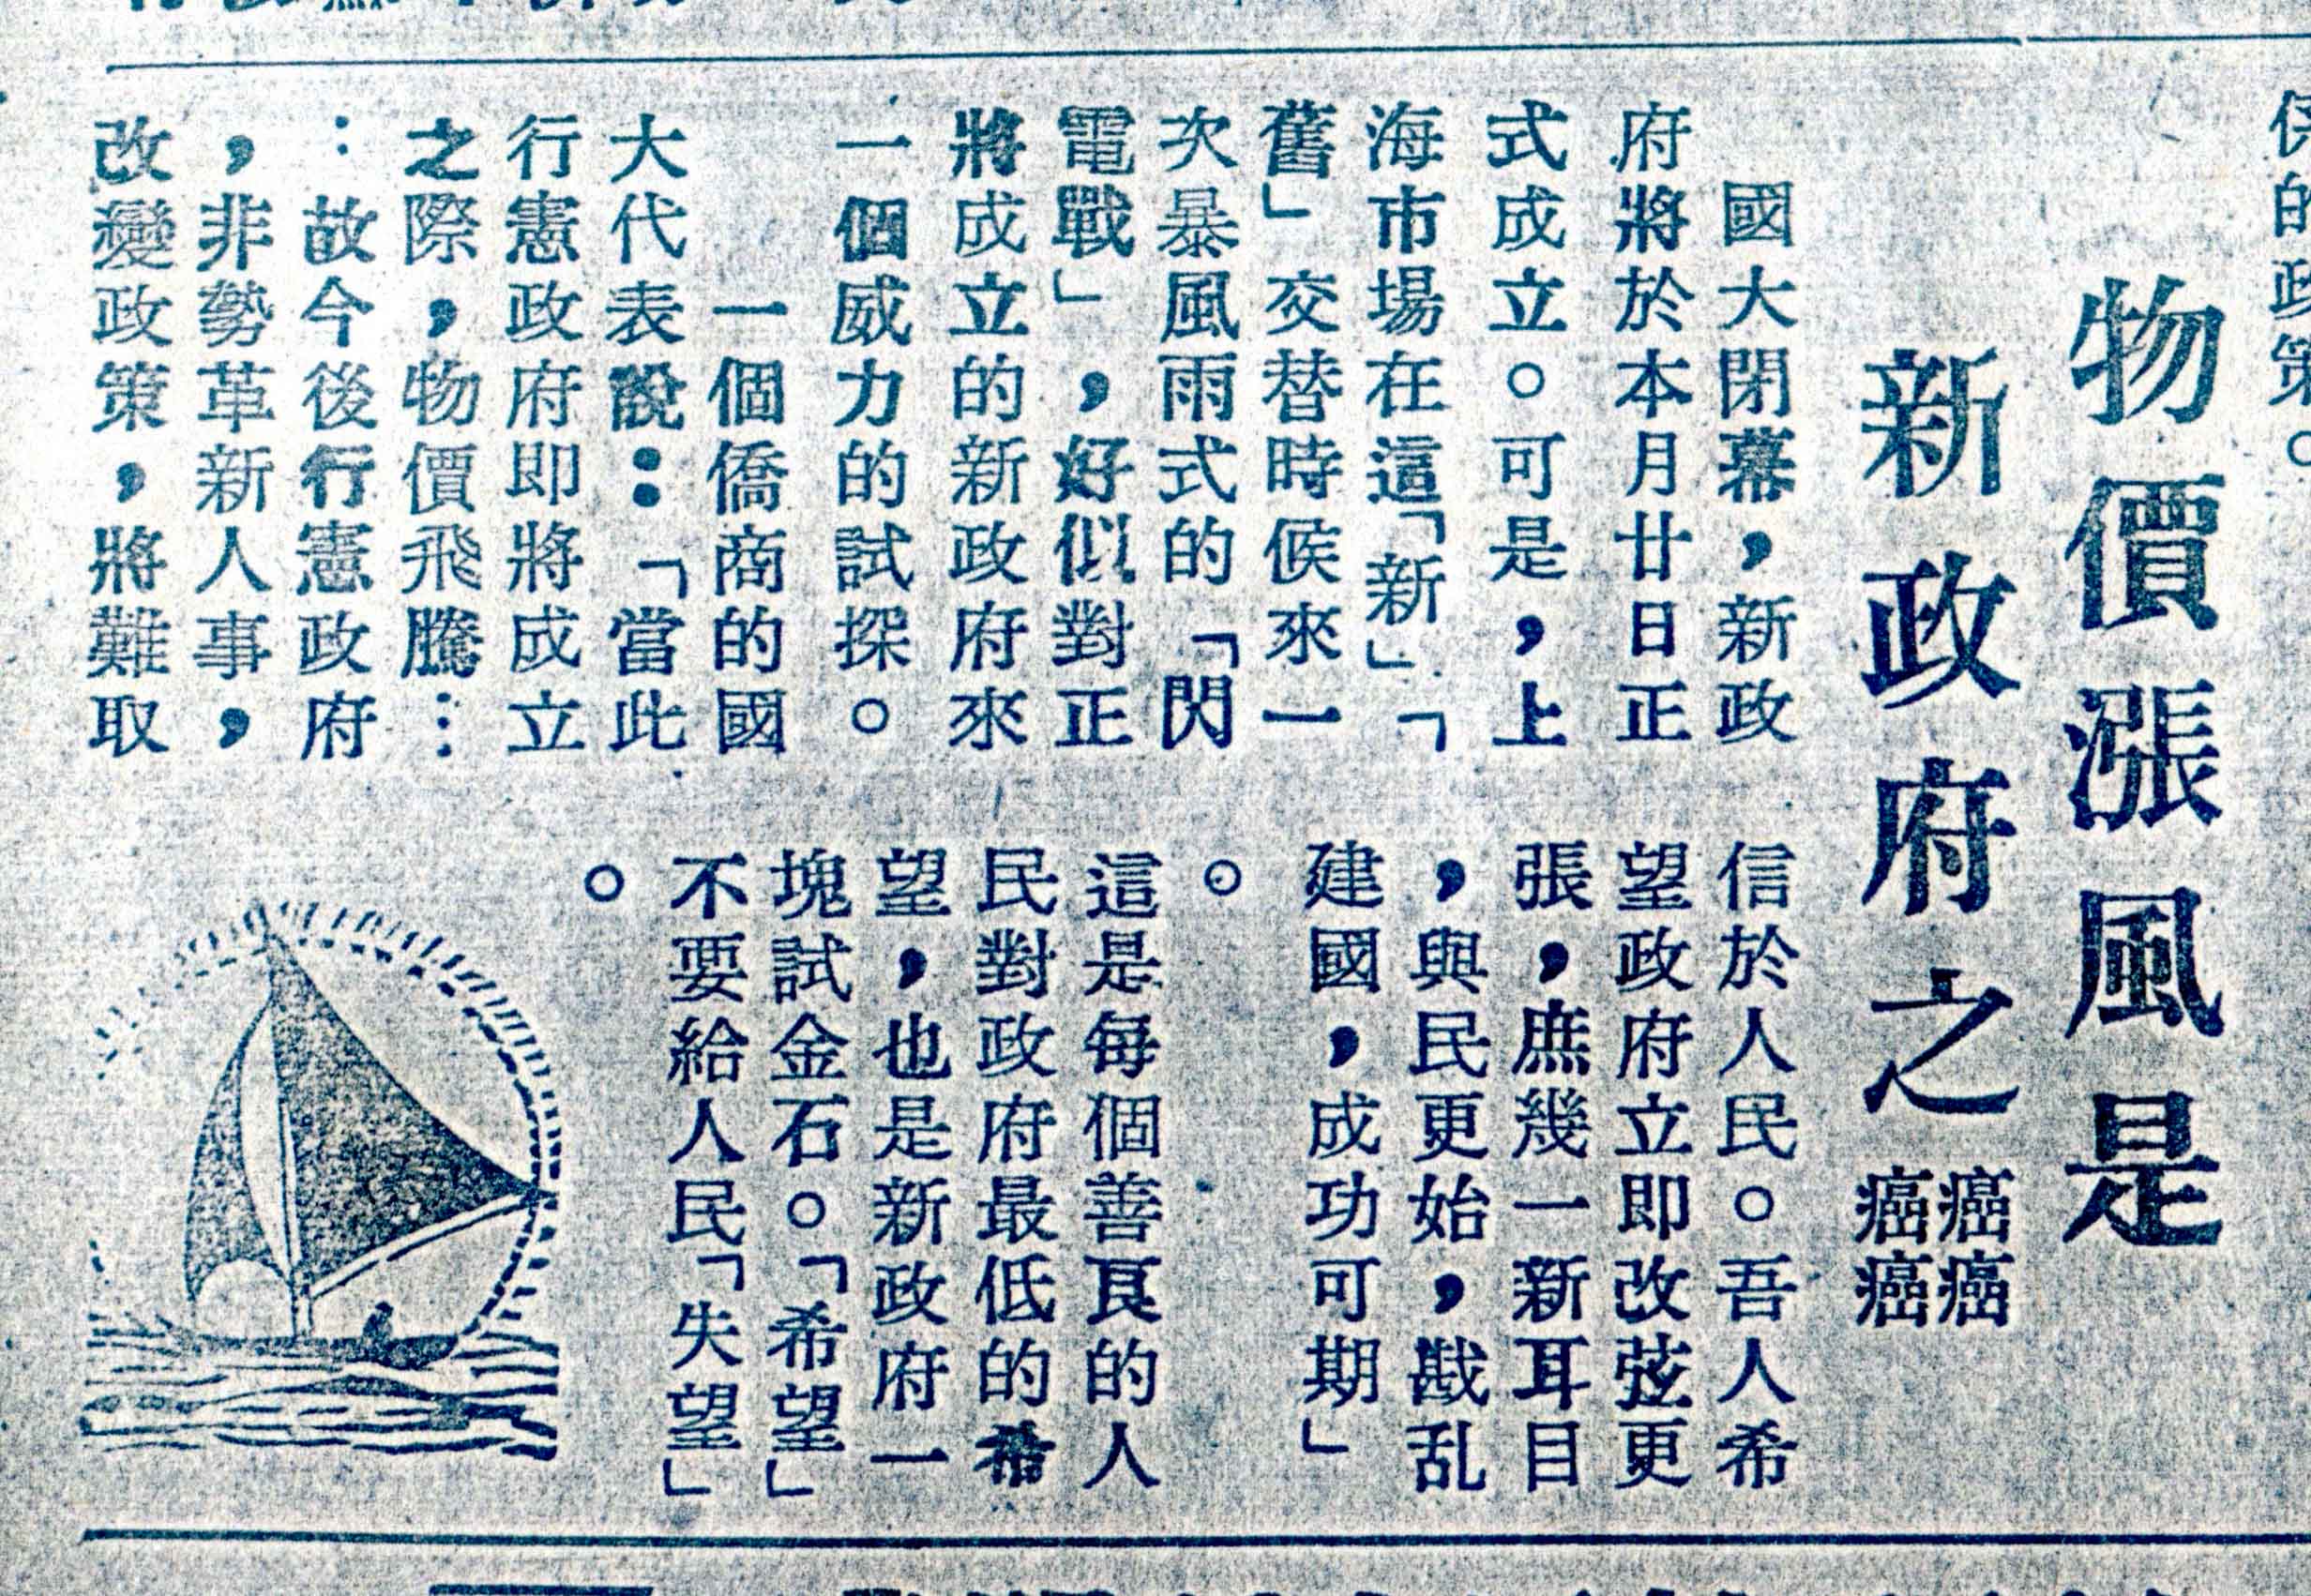 係的政策。
物價漲風是
新政府之
癌癌
癌癌
國大閉幕，新政
府將於本月廿日正
式成立。可是，上
海市場在這「新」「
舊」交替時候來一
次暴風雨式的「閃
電戰」，好似對正
將成立的新政府來
一個威力的試探。
一個僑商的國
大代表說：「當此
行憲政府即將成立
之際，物價飛騰…
：故今後行憲政府
，非勢革新人事，
改變政策，將難取
信於人民。吾人希
望政府立即改弦更
張，庶幾一新耳目
，與民更始，戡乱
建國，成功可期」
。
這是每個善良的人
民對政府最低的希
望，也是新政府一
塊試金石。「希望」
不要給人民「失望」
。